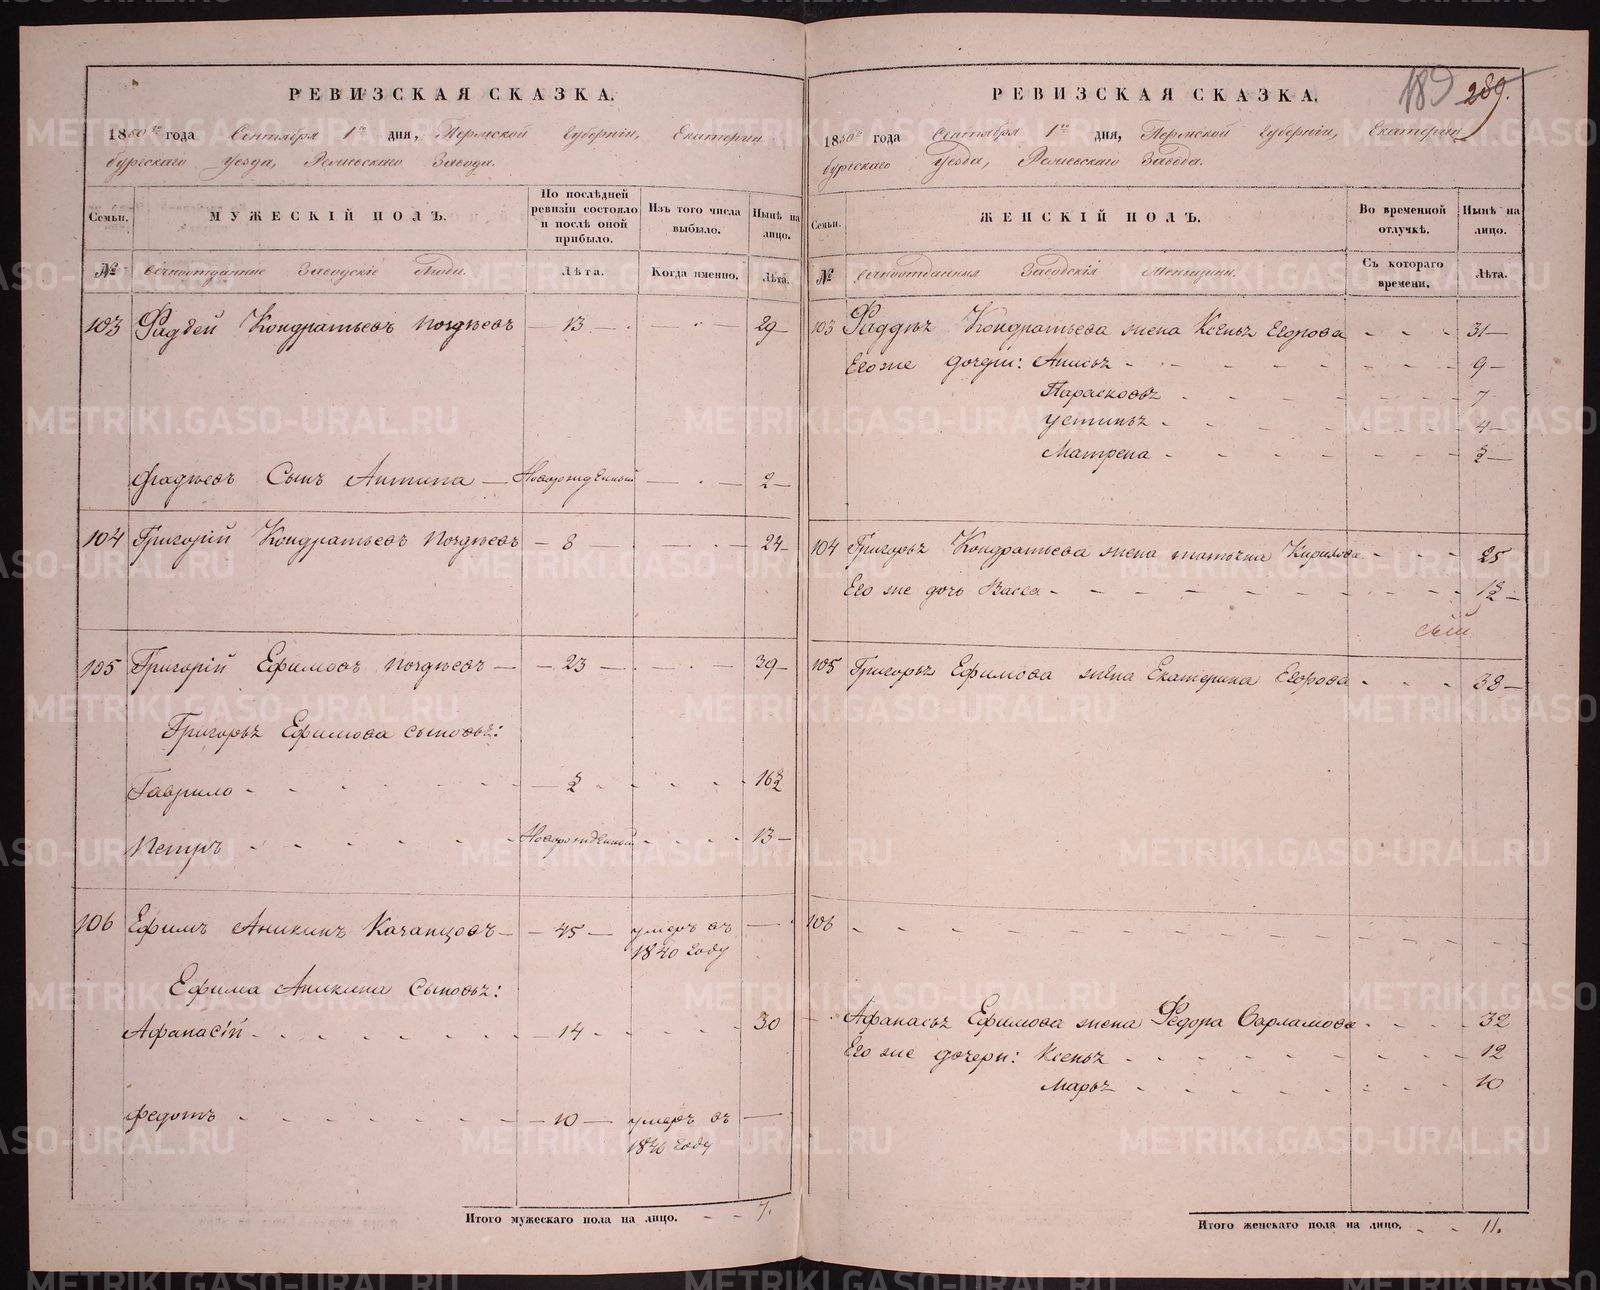 РЕВИЗСКАЯ СКАЗКА.
1850го года Сентября 1го дня, Пермской Губернiи, Екатерин
бургскаго уезда, Режевскаго Завода.
Семьи. МУЖЕСКIЙ ПОЛЪ. По послѣдней ревизiи состояло и послѣ оной прибыло. Изъ того числа выбыло. Нынѣ на лицо.
№ вечноотданные Заводскiе Люди. Лѣта. Когда именно. Лѣта.
103 Фадѣей Кондратьевъ Поздѣевъ — 13 — 29
Фадѣевъ Сынъ Антипа — Новорожденный — 2
104 Григорiй Кондратьевъ Поздѣевъ — 8 — 24
105 Григорiй Ефимовъ Поздѣевъ — 23 — 39
Григорья Ефимова сыновья:
Гаврило - ½ - 16½
Петръ - Новорожденный - 13
106 Ефимъ Аникинъ Качанцовъ — 45 — умеръ въ
1840 году
Ефима Аникина Сыновья:
Афанасiй - 14 - 30
Федотъ - 10 — умеръ въ —
1840 году
Итого мужескаго пола на лицо. 7.
189 289.
РЕВИЗСКАЯ СКАЗКА.
1850го года Сентября 1го дня, Пермской Губернiи, Екатерин
бургскаго уезда, Режевскаго Завода.
Семьи. ЖЕНСКIЙ ПОЛЪ. Во временной отлучкѣ. Нынѣ на лицо.
№ вечноотданныя Заводскiя Женщины. Съ котораго времени. Лѣта.
103 Фаддѣя Кондратьева жена Ксенья Егорова - - - 31
Его же дочери: Анисья - 9
Парасковья - 7
Устинья - 4
Матрена - ½
104 Григорья Кондратьева жена татьяна Кирилова - - - 25
Его же дочь Васса - 1½
105 Григорья Ефимова жена Екатерина Егорова - - - 38
106
Афанасья Ефимова жена Федора Варламова - - - 32
Его же дочери: Ксенья - 12
Марья - 10
Итого женскаго пола на лицо. 11.
METRIKI.GASO-URAL.RU